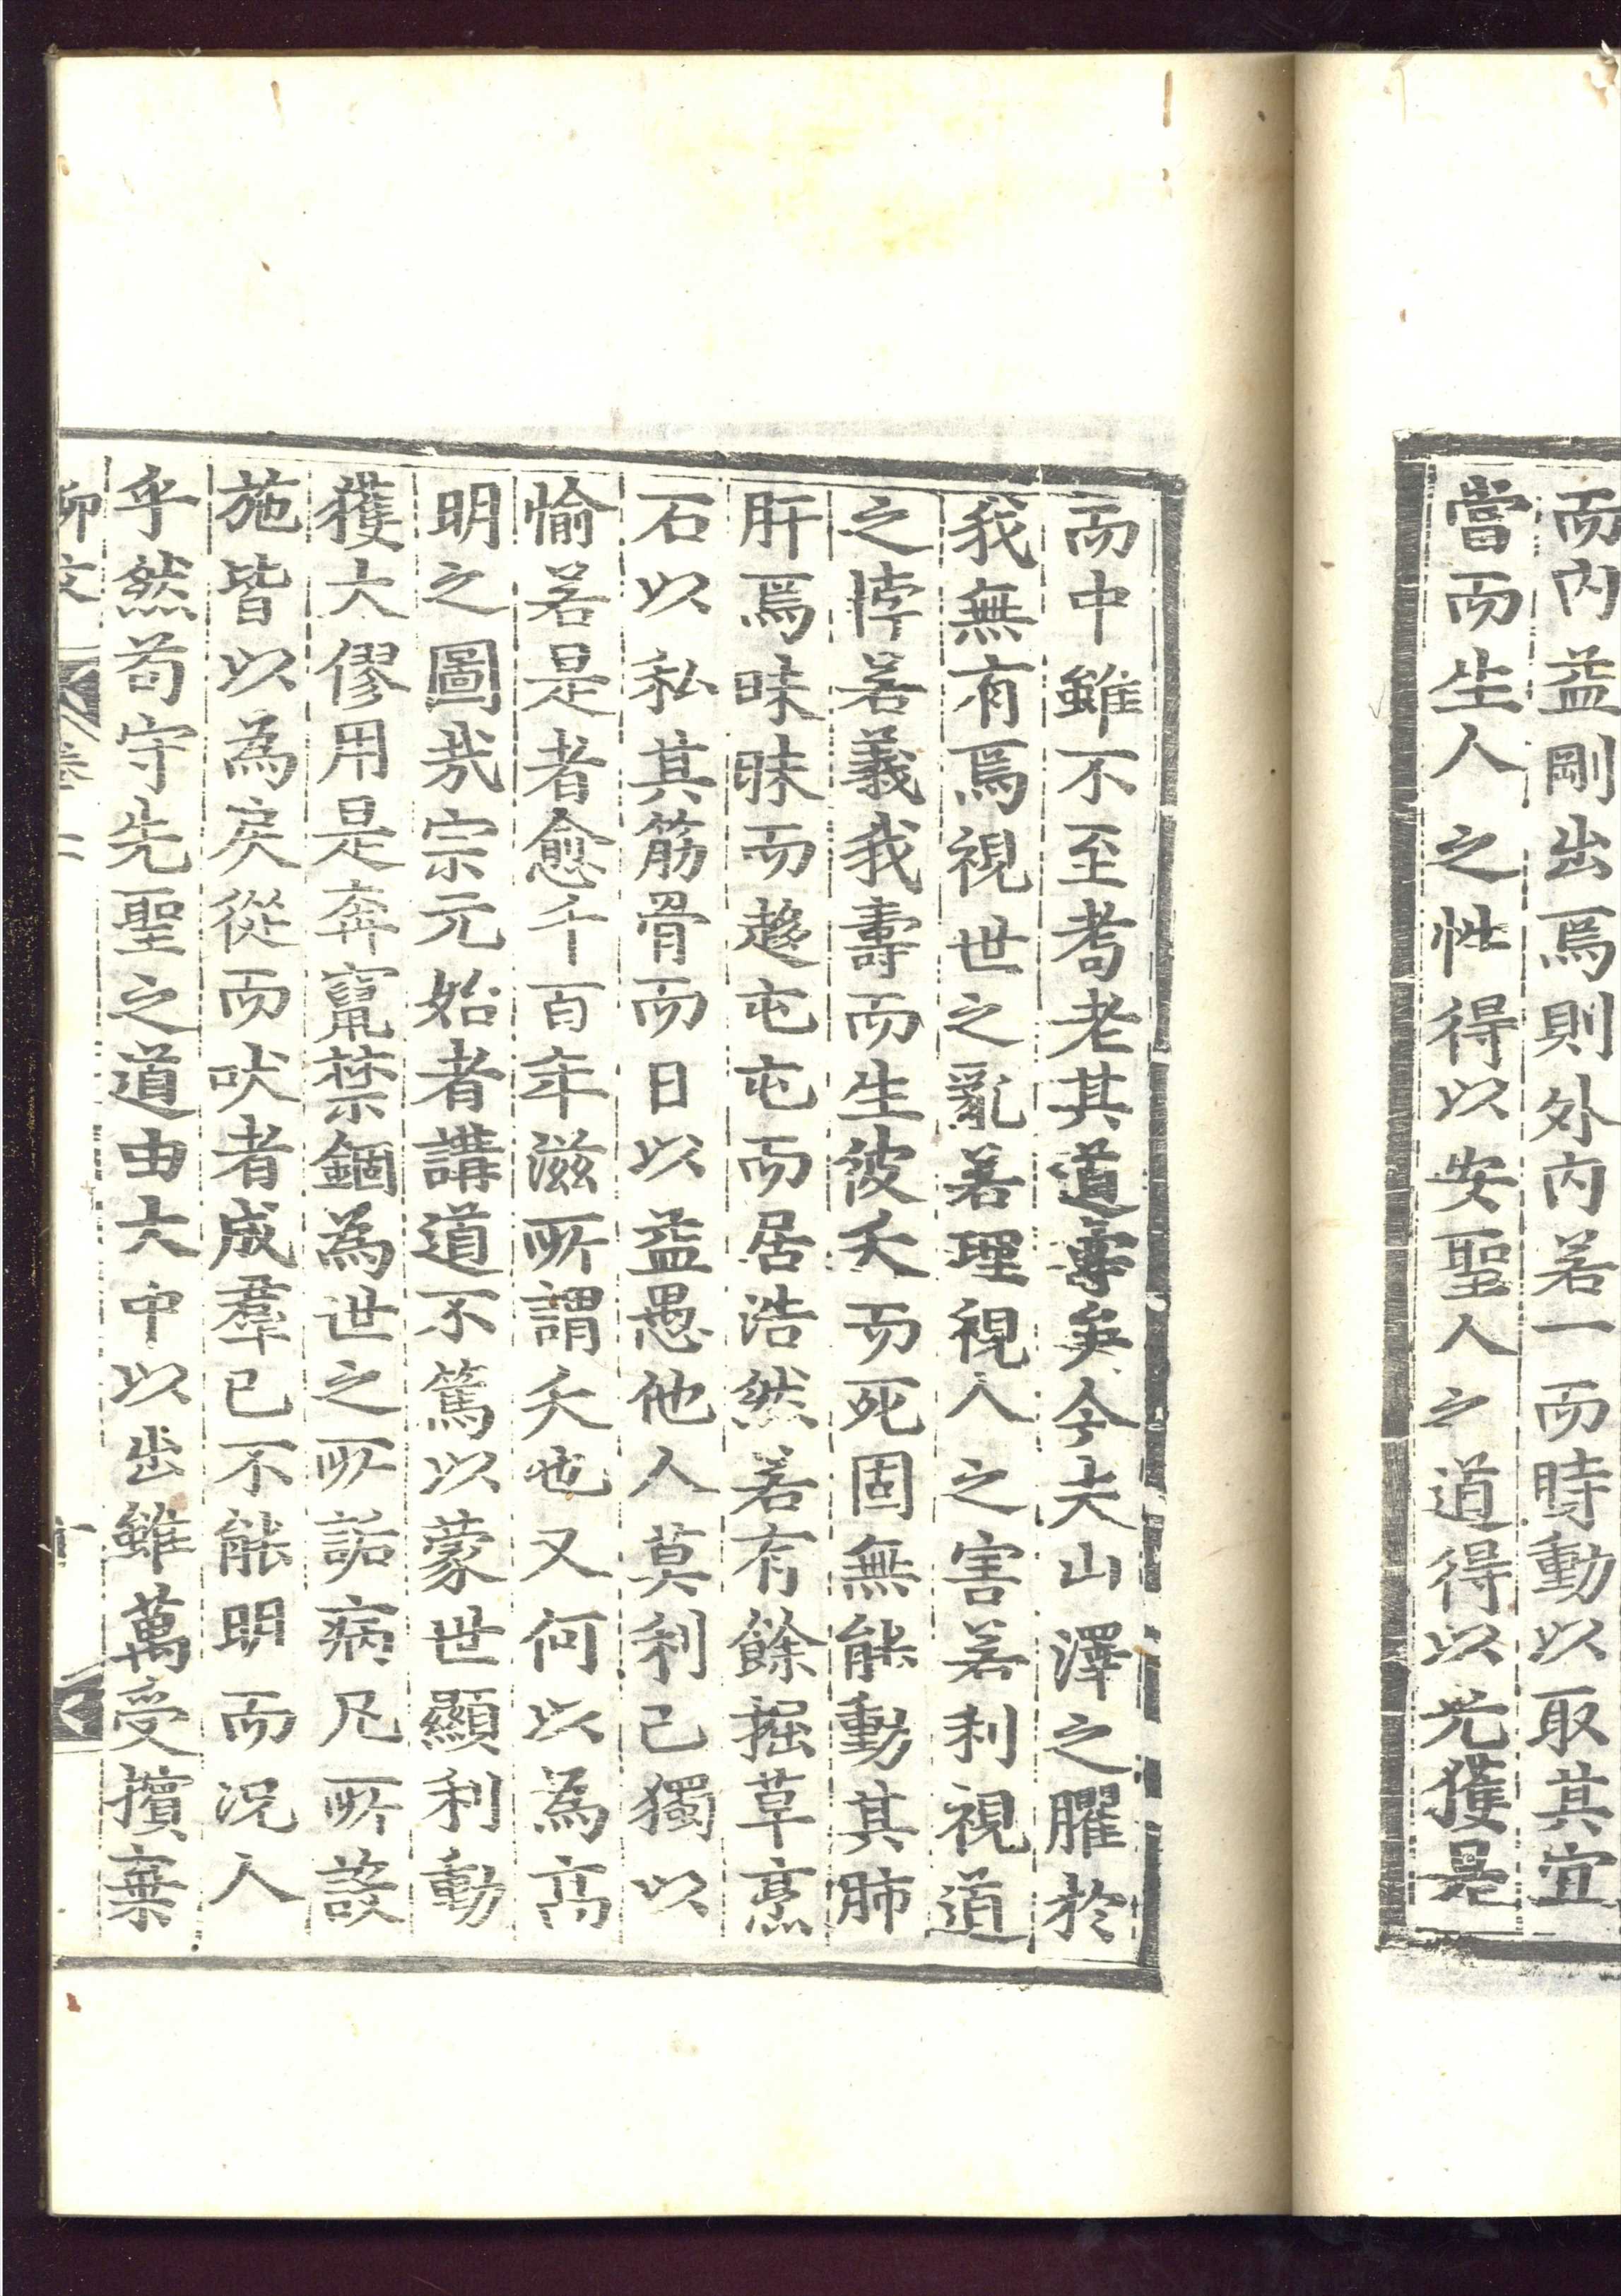 而內益剛出焉則外內若一而時動以取其宜
當而生人之性得以安聖人之道得以光獲是
而中雖不至耇老其道壽矣今夫山澤之臞於
我無有焉視世之亂若理視人之害若利視道
之悖若義我壽而生彼夭而死固無能動其肺
肝焉昧昧而趨屯屯而居浩然若有餘掘草烹
石以私其筋骨而日以益愚他人莫利己獨以
愉若是者愈千百年滋所謂夭也又何以為高
明之圖哉宗元始者講道不篤以蒙世顯利動
獲大僇用是奔竄禁錮為世之所詬病凡所設
施皆以為戾從而吠者成羣已不能明而況人
乎然苟守先聖之道由大中以出雖萬受擯棄
柳文 卷 二